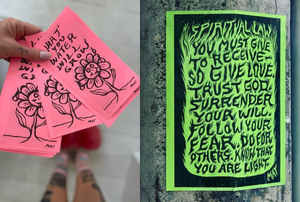 WHAT
YOU
WATER
GROWS
MAT
MAT
SPIRITUAL LAW
YOU MUST GIVE
TO RECEIVE-
SO GIVE LOVE.
TRUST GOD.
SURRENDER
YOUR WILL.
FOLLOW YOUR
FEAR. DO FOR
OTHERS. KNOW THAT
YOU ARE LIGHT.
MAT